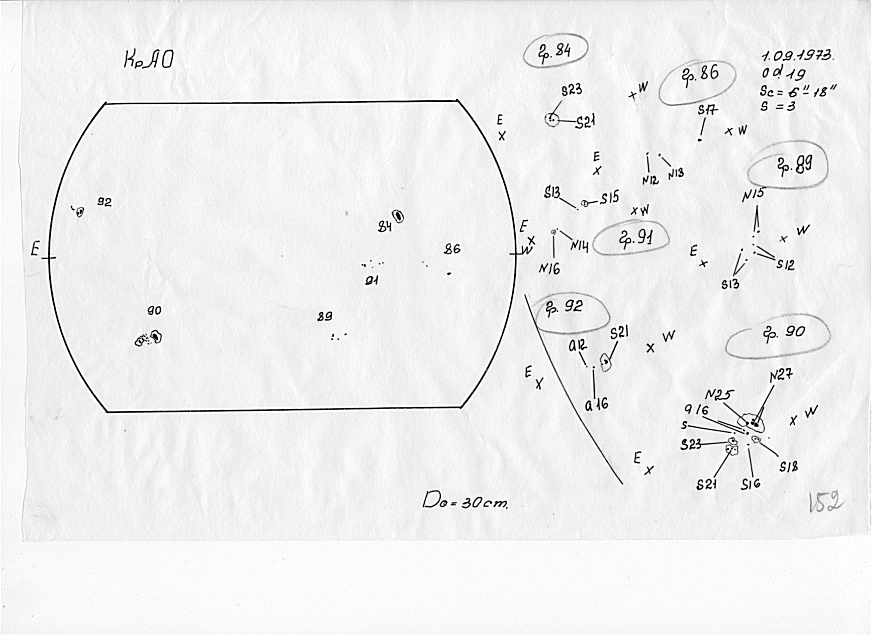 КрАО
гр. 84
1.09.1973.
0d 19
Sc = 6" 18"
S = 3
W
гр. 86
S23
S21
S17
W
E
X
E
X
N12 N13
гр. 89
N15
S13 S15
W
гр. 91
E
X
N14
N16
W
E
X
S12
S13
92
84
E
W
86
91
90
89
гр. 92
а12 S21
W
E
X
а16
гр. 90
N27
N25
W
а16
S
S23
E
X
S18
S21 S16
D⊙ = 30 cm.
152